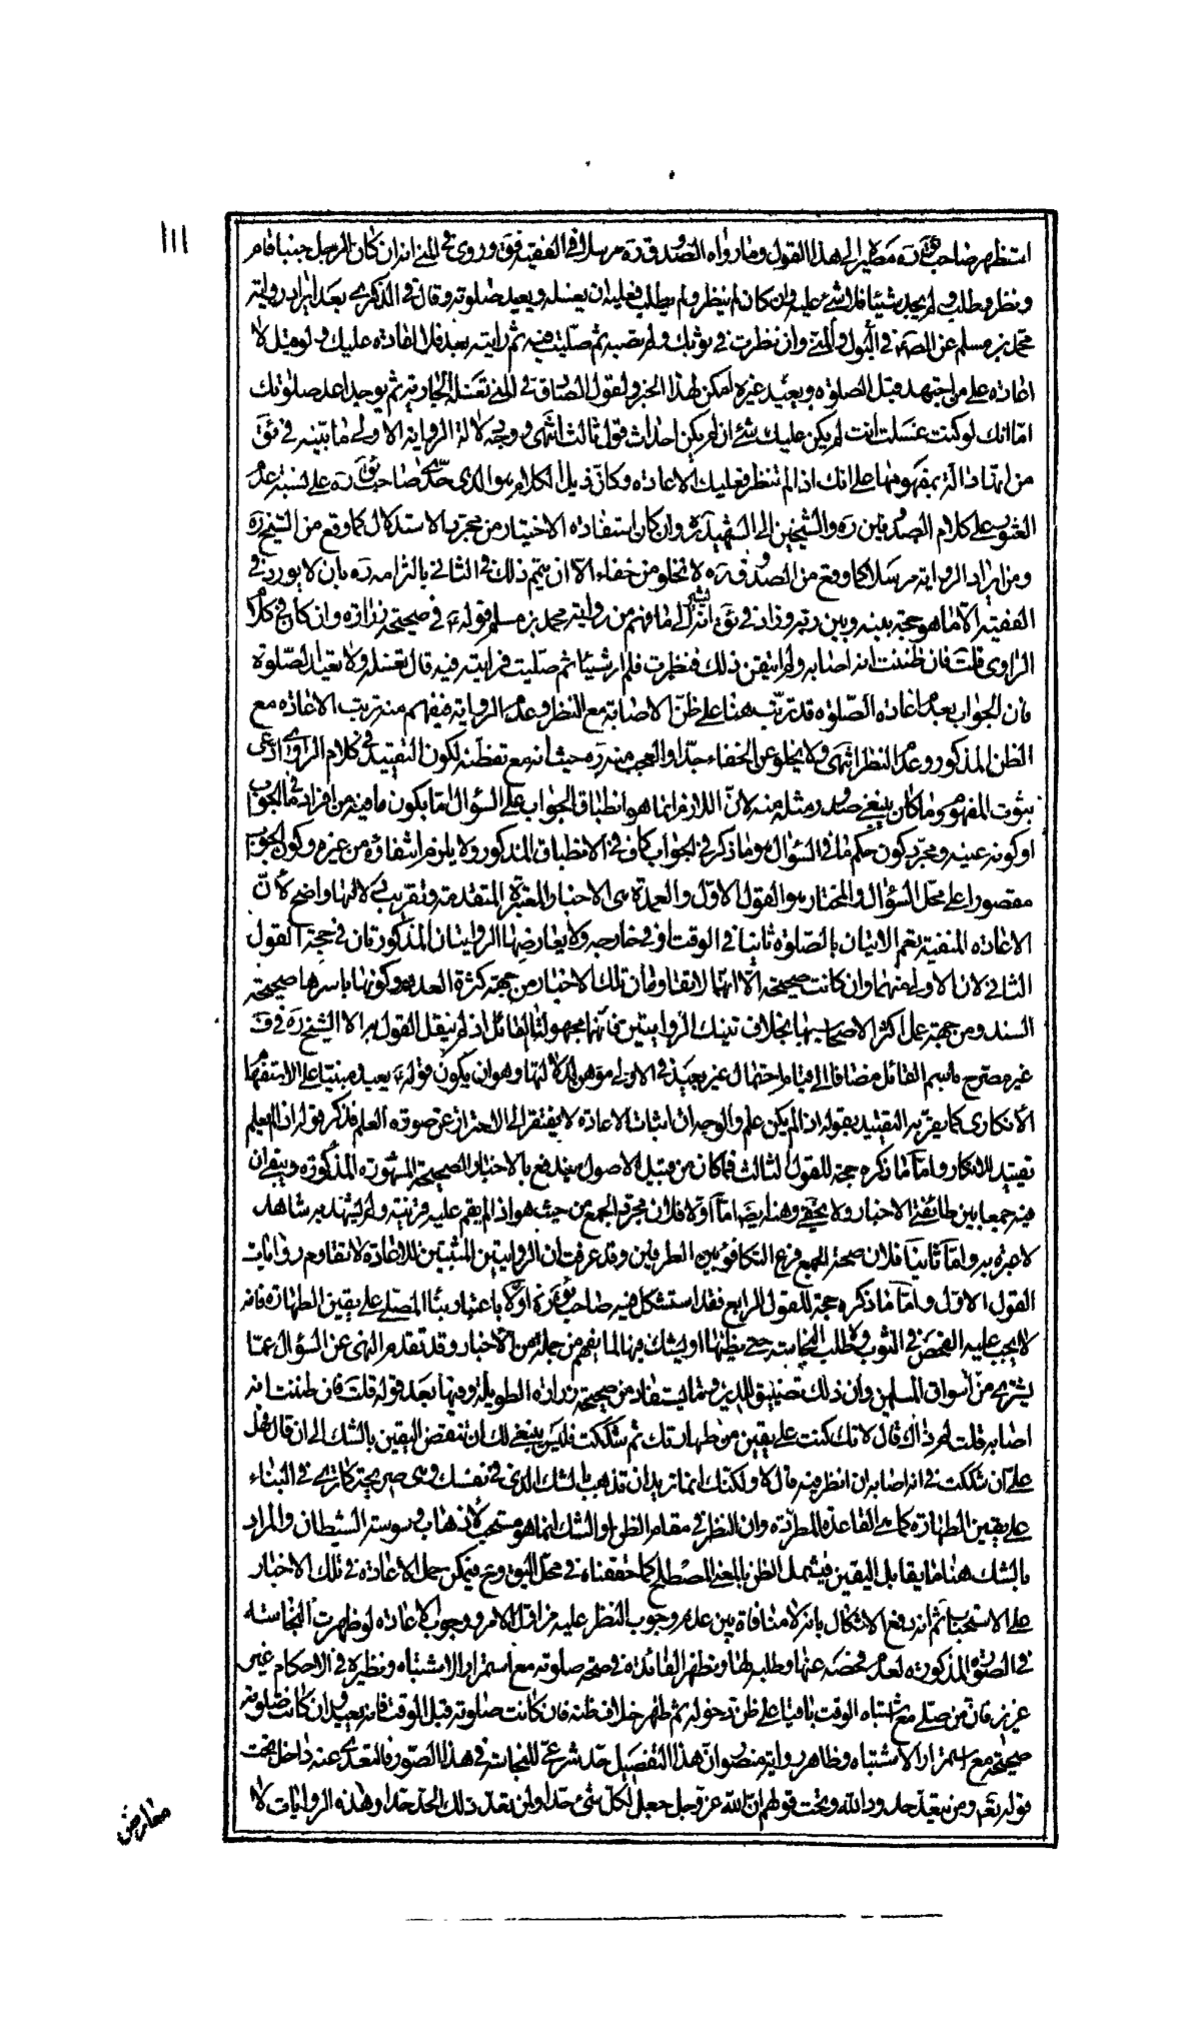 ١١١
استظهر صاحب ئق ره مصيرا الى هذا القول وما رواه الصدوق ره مرسلا في الفقيه فق وروى في المنى انه ان كان الرجل جنبا قام
ونظر وطلب ولم يجد شيئا فلا شئ عليه وان كان لم ينظر ولم يطلب فعليه ان يغسله ويعيد صلوته وقال في الذكرى بعد ايراد رواية
محمد بن مسلم عن الصم في البول والمنى وان نظرت في ثوبك ولم تصبه ثم صليت فيه ثم رايته بعد فلا اعادة عليك ولو قيل لا
اعادة على من اجتهد قبل الصلوة ويعيد غيره امكن لهذا الخبر ولقول الصادق في المنى تغسله الجارية ثم يوجد اعد صلوتك
اما انك لو كنت غسلت انت لم يكن عليك شئ ان لم يكن احداث قول ثالث انتهى ووجه دلالة الرواية الاولى ما بينه في ئق
من انها دالة بمفهومها على انك اذا لم تنظر فعليك الاعادة وكان ذيل الكلام هو الذي صاحب ئق ره على نسبة عدم
العثور على كلام الصدوقين ره والشيخين الى الشهيد ره وان كان استفادة الاختيار من مجرد الاستدلال كما وقع من الشيخ ره
ومن ايراد الرواية مرسلا كما وقع من الصدوق ره لا تخلو من خفاء الا ان يتم ذلك في الثاني بالتزامه ره بان لا يورد في
الفقيه الا ما هو حجة بينه وبين ربه وزاد في ئق انه يشير الى ما فهم من رواية محمد بن مسلم قوله ع في صحيحة زرارة وان كان في كلام
الراوى قلت فان ظننت انه اصابه ولم اتيقن ذلك فنظرت فلم ار شيئا ثم صليت فرايته فيه قال تغسله ولا تعيد الصلوة
فان الجواب بعدم اعادة الصلوة قد ترتب هنا على ظن الاصابة مع النظر وعدم الرواية فيفهم منه ترتب الاعادة مع
الظن المذكور وعدم النظر انتهى ولا يخلو عن الخفاء جدا والعجب منه ره حيث انه مع تفطنه لكون التقييد في كلام الراوى ادعى
ثبوت المفهوم وما كان ينبغي صدور مثله منه لان اللازم انما هو انطباق الجواب على السؤال اما بكون ما فيه من افراد ما في الجواب
او كونه عينه ومجرد كون حكم ما في السؤال هو ما ذكر في الجواب كاف في الانطباق المذكور ولا يلزم استفادة من غيره وكون الجواب
مقصورا على محل السؤال والمختار هو القول الاول والعمدة هى الاخبار المعتبرة المتقدمة وتقريب دلالتها واضح لان
الاعادة المنفية يعم الاتيان بالصلوة ثانيا في الوقت او في خارجه ولا يعارضها الروايتان المذكورتان في حجة القول
الثاني لان الاولى منهما وان كانت صحيحة الا انها لا تقاومان تلك الاخبار من جهة كثرة العدد وكونها باسرها صحيحة
السند ومن جهة عمل اكثر الاصحاب بها بخلاف تينك الروايتين فانها مجهولتا القائل اذ لم ينقل القول به الا الشيخ ره في ف
غير مصرح باسم القائل مضافا الى قيام احتمال غير بعيد في الاولى موهن لدلالتها وهو ان يكون قوله ع يعيد مبنيا على الاستفهام
الانكارى كما يقربه التقييد بقوله اذا لم يكن علم والوجه ان اثبات الاعادة لا يفتقر الى الاحتراز عن صورة العلم فذكر قوله اذا لم يعلم
تقييد للانكار واما ما ذكره حجة للقول الثالث فما كان من قبيل الاصول يندفع بالاخبار الصحيحة المشهورة المذكورة ويبقى ان
فيه جمعا بين طائفتى الاخبار ولا يخفى وهنه ايضا اما اولا فلان مجرد الجمع من حيث هو اذا لم يقم عليه قرينة ولم يشهد به شاهد
لا عبرة به واما ثانيا فلان صحة الجمع فرع التكافؤ بين الطرفين وقد عرفت ان الروايتين المثبتين للاعادة لا تقاوم روايات
القول الاول واما ما ذكره حجة للقول الرابع فقد استشكل فيه صاحب ئق ره اولا باعتبار بناء المصلى على يقين الطهارة فانه
لا يجب عليه الفحص في الثوب ولا طلب النجاسة حتى يظنها او يشك فيها لما يفهم من جملة من الاخبار وقد تقدم النهى عن السؤال عما
يشترى من اسواق المسلمين وان ذلك تضييق للدين ومما يستفاد من صحيحة زرارة الطويلة وفيها بعد قوله قلت فان ظننت انه
اصابه قلت لم ذلك قال لانك كنت على يقين من طهارتك ثم شككت فليس ينبغي لك ان تنقض اليقين بالشك الى ان قال فهل
على ان شككت في انه اصابه ان انظر فيه قال لا ولكنك انما تريد ان تذهب بالشك الذى في نفسك وهى صريحة كما ترى في البناء
على يقين الطهارة كما هى القاعدة المطردة وان النظر في مقام الظن او الشك انما هو مستحب لاذهاب وسوسة الشيطان والمراد
بالشك هنا ما يقابل اليقين فيشمل الظن بالمعنى المصطلح كما حققناه في محل اليق وع فيمكن حمل الاعادة في تلك الاخبار
على الاستحباب ثم انه دفع الاشكال بانه لا منافاة بين عدم وجوب النظر عليه من اقل الامر ووجوب الاعادة لو ظهرت النجاسة
في الصورة المذكورة لعدم فحصه عنها وطلبه لها وتظهر الفائدة في صحة صلوته مع استمرار الاشتباه ونظيره في الاحكام غير
عزيز فان من صلى مع اشتباه الوقت بانيا على ظن دخوله ثم ظهر خلاف ظنه فان كانت صلوته قبل الوقت فانه يعيد وان كانت صلوته
صحيحة مع استمرار الاشتباه وظاهر رواية منصور ان هذا التفصيل حد شرعى للنجاسة في هذا الصور فالتعدى عنه داخل تحت
قوله تعم ومن يتعد حدود الله وتحت قولهم ان الله عز وجل جعل لكل شئ حدا ولمن تعدى ذلك الحد حدا وهذه الروايات لا
معارض